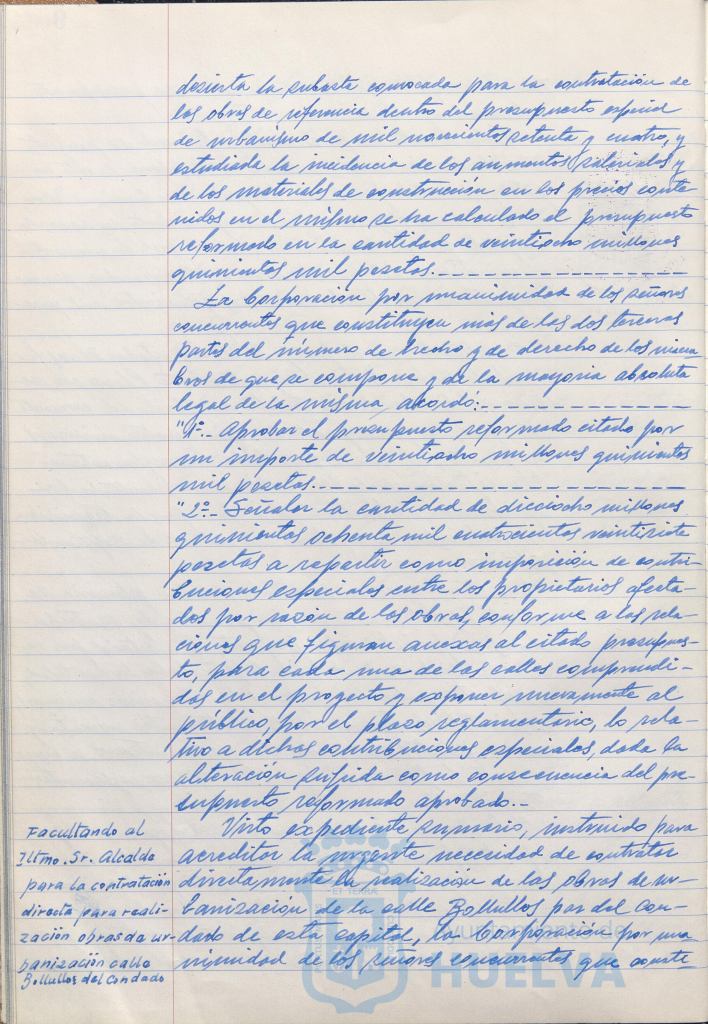 desierta la subasta convocada para la contratación de
las obras de referencia dentro del presupuesto especial
de urbanismo de mil novecientos setenta y cuatro, y
estudiada la incidencia de los aumentos salariales y
de los materiales de construcción en los precios conte-
nidos en el mismo se ha calculado el presupuesto
reformado en la cantidad de veintiocho millones
quinientas mil pesetas.
La Corporación por unanimidad de los señores
concurrentes que constituyen más de las dos terceras
partes del número de hecho y de derecho de los miem-
bros de que se compone y de la mayoría absoluta
legal de la misma, acordó:
"1º.- Aprobar el presupuesto reformado citado por
un importe de veintiocho millones quinientas
mil pesetas.
"2º.- Señalar la cantidad de dieciocho millones
quinientas ochenta mil cuatrocientas veintisiete
pesetas a repartir como imposición de contri-
buciones especiales entre los propietarios afecta-
dos por razón de las obras, conforme a las rela-
ciones que figuran anexas al citado presupues-
to, para cada una de las calles comprendi-
das en el proyecto y exponer nuevamente al
público, por el plazo reglamentario, lo rela-
tivo a dichas contribuciones especiales, dada la
alteración sufrida como consecuencia del pre-
supuesto reformado aprobado.-
Facultando al
Iltmo. Sr. Alcalde
para la contratación
directa para reali-
zación obras de ur-
banización calle
Bollullos del Condado
Visto expediente sumario, instruido para
acreditar la urgente necesidad de contratar
directamente la realización de las obras de ur-
banización de la calle Bollullos par del Con-
dado de esta capital, la Corporación por una-
nimidad de los señores concurrentes que consti-
HUELVA